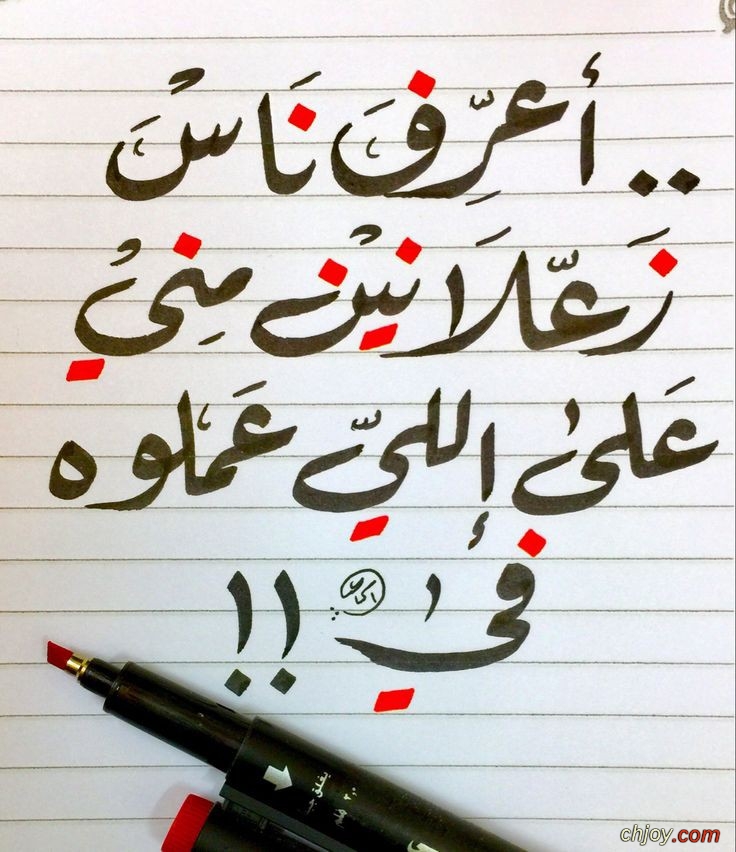 .. أعرِّفَ نَاسَ
زَعّلَانيْن مِنيُ
عَلىٰ إلليّ عَملوه
في !!
يغلق
chjoy.com